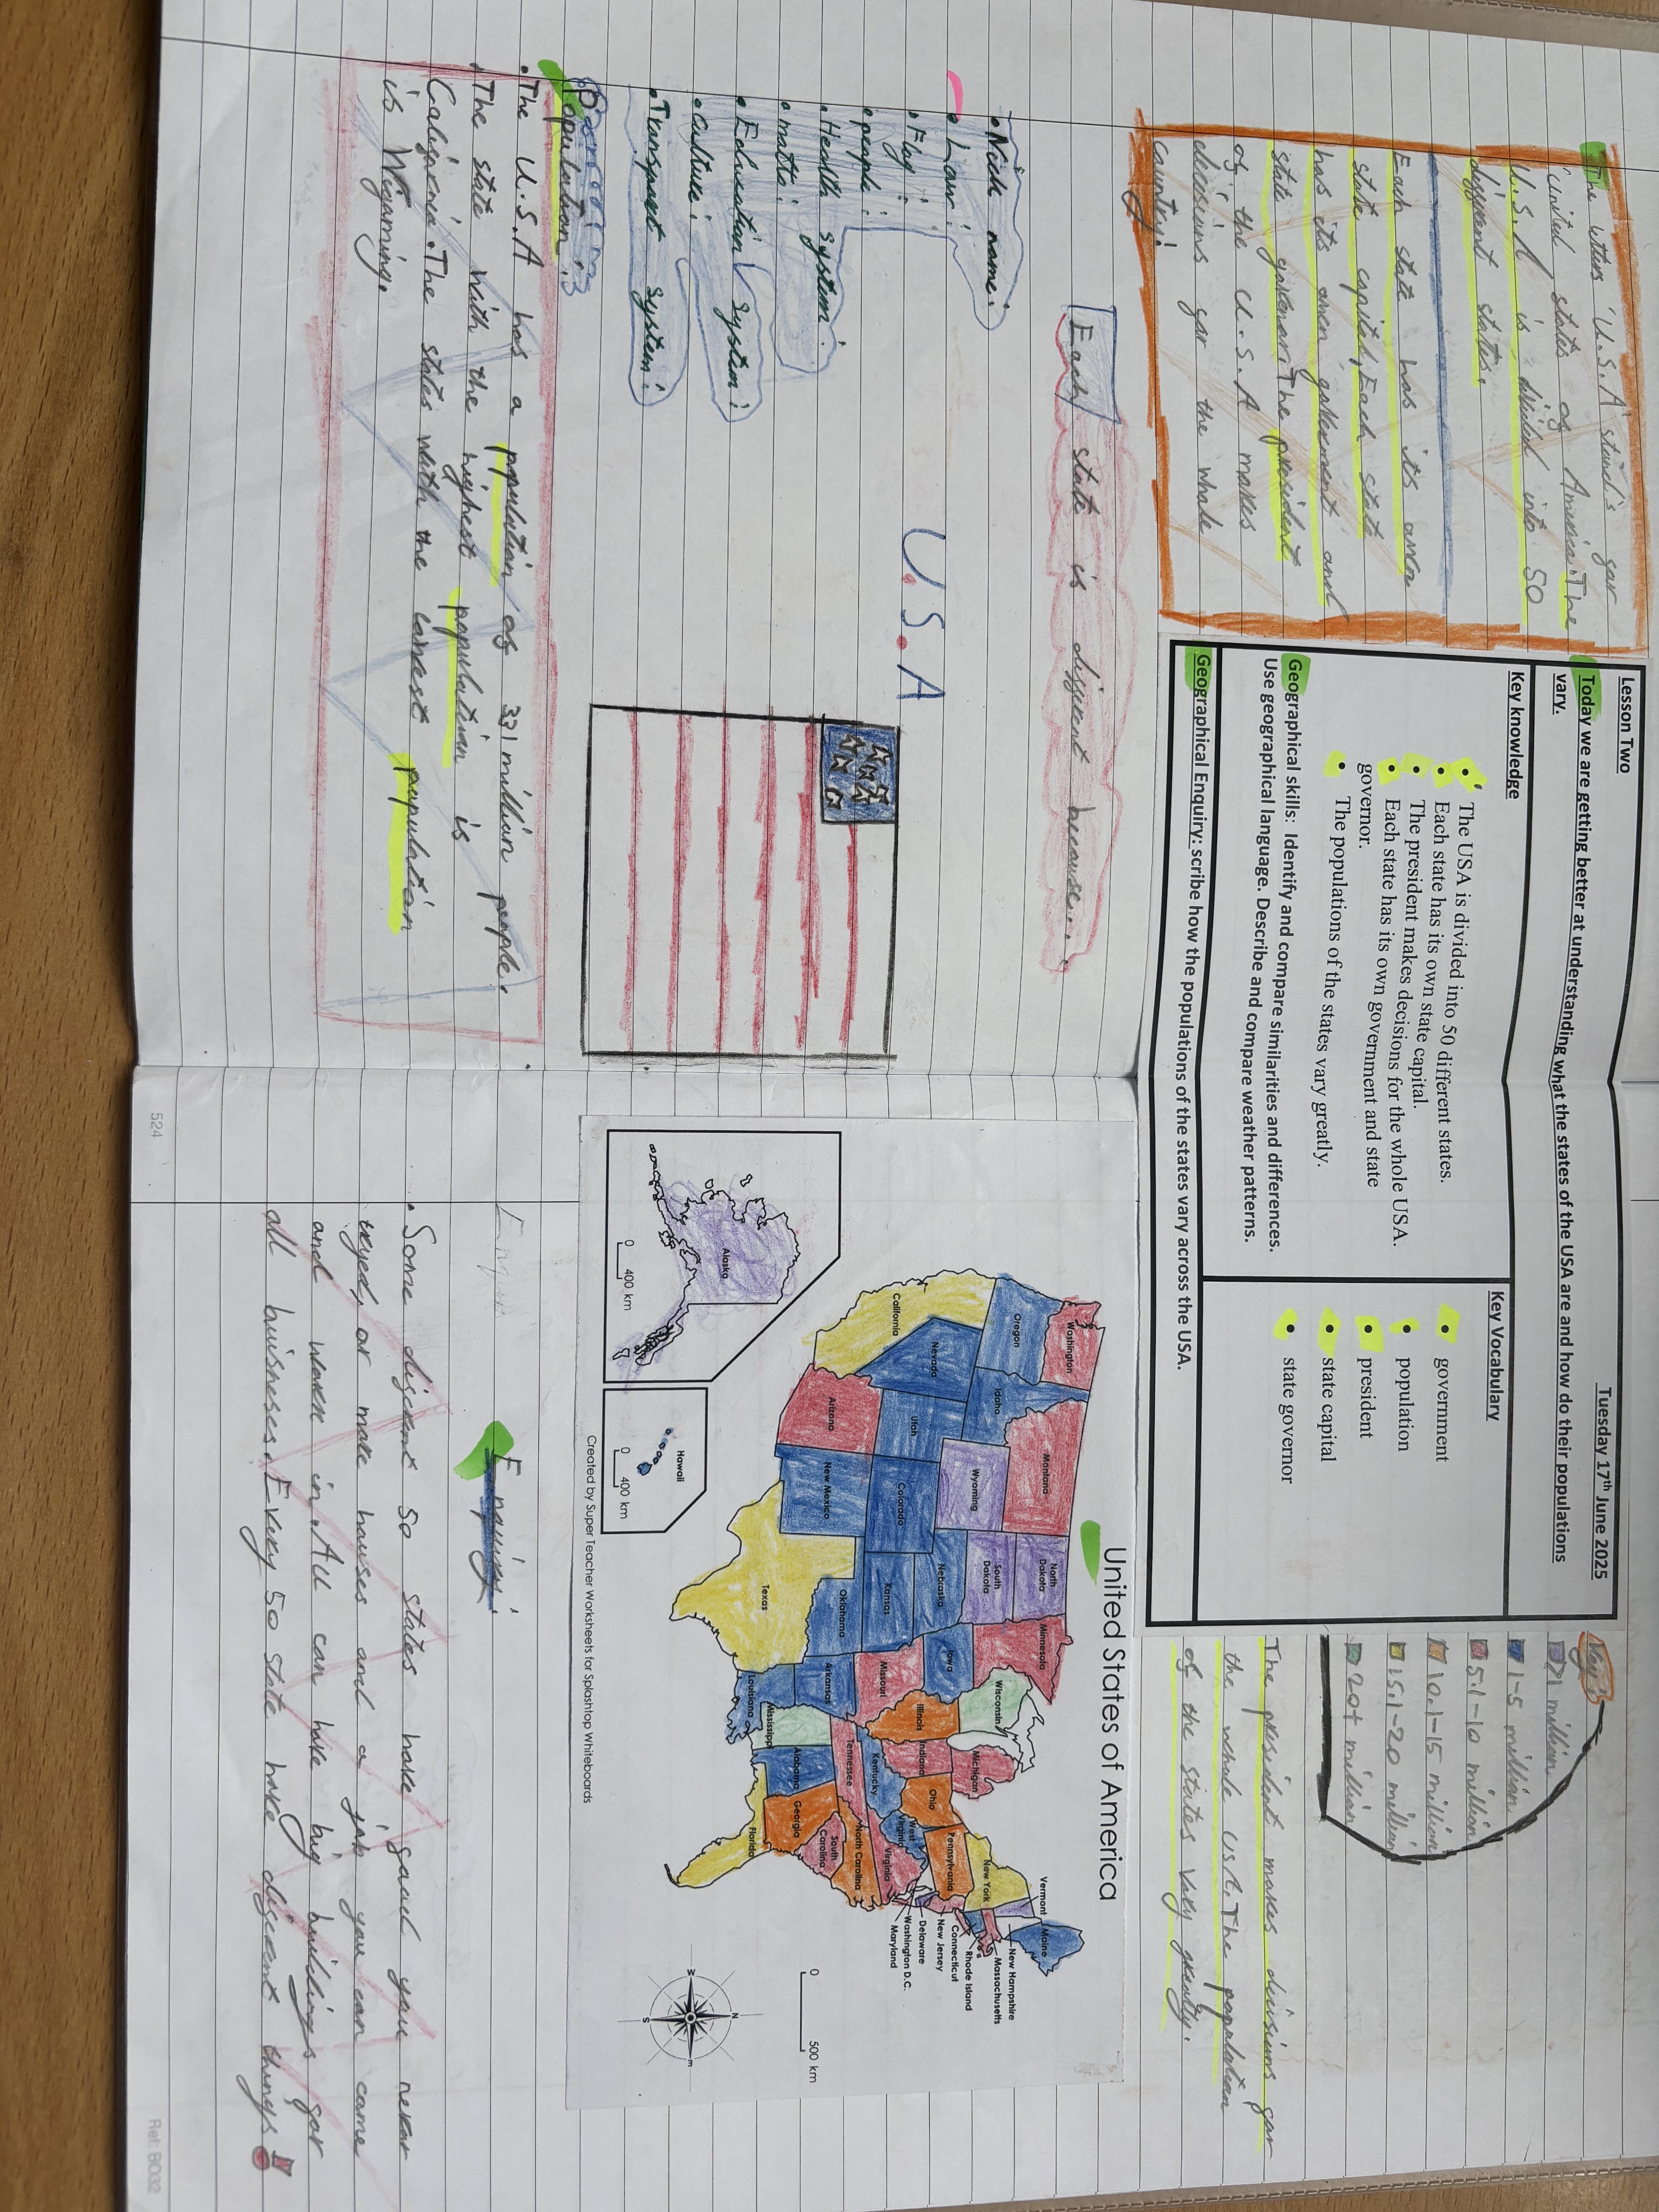 The letters 'U.S.A' stand's gor
'United states og America.The
U.S.A is divided into 50
diggent states.
Each state has its own
state capital,Each state
has its own gallerment and
state govenor.The president
og the U.S.A makes
decisions gor the whole
county!
Lesson Two
Tuesday 17th June 2025
Today we are getting better at understanding what the states of the USA are and how do their populations
vary.
Key knowledge
• The USA is divided into 50 different states.
• Each state has its own state capital.
• The president makes decisions for the whole USA.
• Each state has its own government and state
governor.
• The populations of the states vary greatly.
Key Vocabulary
• government
• population
• president
• state capital
• state governor
Geographical skills: Identify and compare similarities and differences.
Use geographical language. Describe and compare weather patterns.
Geographical Enquiry: scribe how the populations of the states vary across the USA.
Key:
1 million
1-5 million
5.1-10 million
10.1-15 million
15.1-20 million
20+ million
The president makes decisions gor
the whole USA.The population
og the states vary greatly.
Each state is diggent because...
• Nick name:
• Law:
• Flag:
• people:
• Health system:
• motto:
• Education System:
• culture:
• Transport system:
U.S.A
Population:
• The U.S.A has a population og 331 million people.
• The state with the highest population is
Caligornia.The states with the lowest population
is Wyoming.
United States of America
Washington
Oregon
California
Nevada
Idaho
Montana
Wyoming
Utah
Arizona
Colorado
New Mexico
North Dakota
South Dakota
Nebraska
Kansas
Oklahoma
Texas
Minnesota
Iowa
Missouri
Arkansas
Louisiana
Wisconsin
Illinois
Michigan
Indiana
Ohio
Kentucky
Tennessee
Mississippi
Alabama
Georgia
Florida
South Carolina
North Carolina
Virginia
West Virginia
Pennsylvania
New York
Vermont
Maine
New Hampshire
Massachusetts
Rhode Island
Connecticut
New Jersey
Delaware
Washington D.C.
Maryland
Alaska
0 400 km
Hawaii
0 400 km
0 500 km
N
E
S
W
Created by Super Teacher Worksheets for Splashtop Whiteboards
Enquiry:
• Some digerent 50 states have good you never
or make houses and a job you can come
and work in.All can have big buildings gor
all buisnesses.Every 50 state have digerent things!
524
Ref: BO32